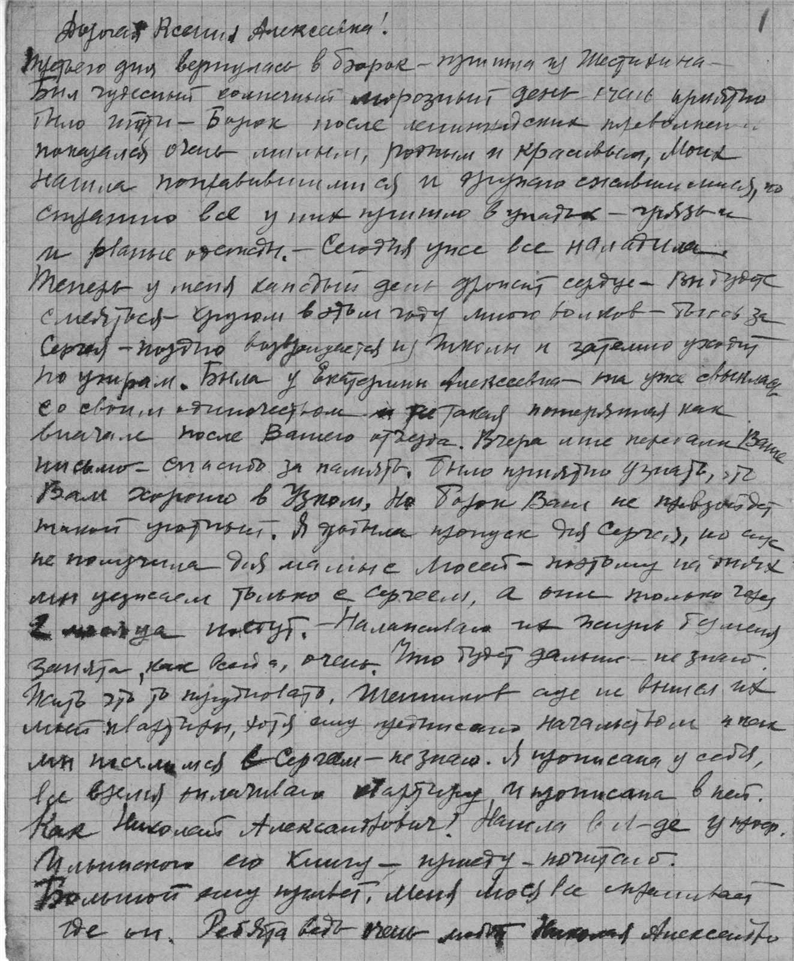 1
Дорогая Ксения Алексеевна!
Третьего дня вернулась в Борок – пришла из Шестихина –
Был чудесный солнечный морозный день очень приятно
было идти – Борок после ленинградских
показался очень милым, родным и красивым, Моих
нашла поправившимися и дружно сжившимися, но
страшно все у них пришло в упадок – грязь и
и рваные одежды. – Сегодня уже все наладила.
Теперь у меня каждый день дрожит сердце – Вы будете
смеяться – кругом в этом году много волков – боюсь за
Сергея – поздно возвращается из школы и затемно уходит
по утрам. Была у Екатерины Алексеевны – та уже свыклась
со своим одиночеством и не такая потерянная как
вначале после Вашего отъезда. Вчера мне передали Ваше
письмо – спасибо за память. Было приятно узнать, что
Вам хорошо в Узком, Но Борок Вам не
такой уютный. Я добыла пропуск для Сергея, но еще
не получила для мамы с Мосей – поэтому на днях
мы уезжаем только с Сергеем, а они только через
2 месяца поедут. – Налаживаю их жизнь без меня
занята, как всегда, очень. Что будет дальше – не знаю.
Жить это то Шетников еще не выехал из
моей квартиры, хотя ему предписано начальством и как
мы поселимся с Сергеем – не знаю. Я прописана у себя,
все время оплачиваю квартиру и прописана в ней.
Как Николай Александрович? Нашла в Л-де у проф.
Ильинского его книгу – приеду – почитаю.
Большой ему привет, меня Мося все спрашивает
где он. Ребята ведь очень любят Николая Александро